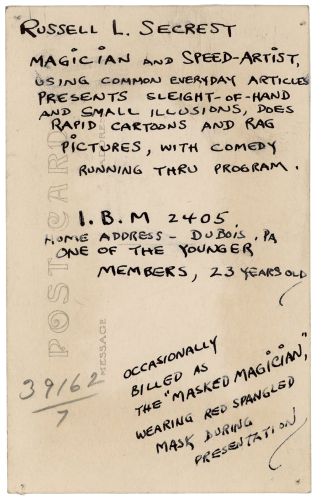 RUSSELL L. SECREST
MAGICIAN AND SPEED-ARTIST,
USING COMMON EVERYDAY ARTICLES
PRESENTS SLEIGHT-OF-HAND
AND SMALL ILLUSIONS, DOES
RAPID CARTOONS AND RAG
PICTURES, WITH COMEDY
RUNNING THRU PROGRAM.
I.B.M 2405
HOME ADDRESS - DUBOIS, PA
ONE OF THE YOUNGER
MEMBERS, 23 YEARS OLD
OCCASIONALLY
BILLED AS
THE "MASKED MAGICIAN",
WEARING RED SPANGLED
MASK DURING
PRESENTATION
39162
7
POSTCARD
MESSAGE